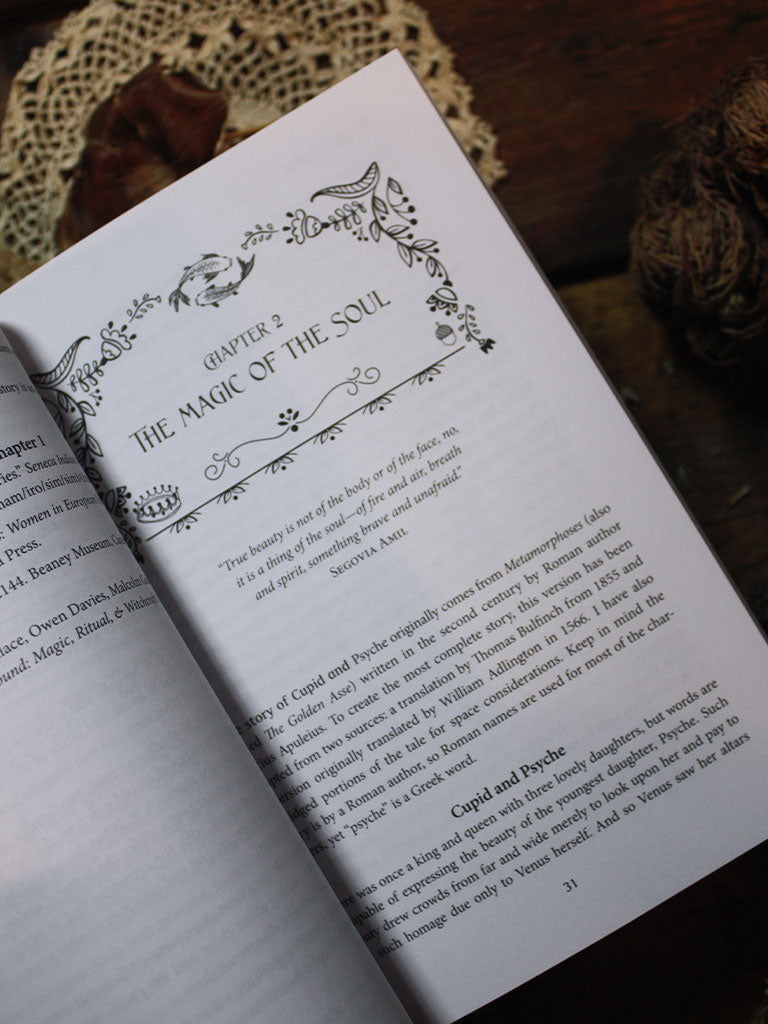 story is
hapter 1
ries." Seneca
ham/iro/sim/sim
: Women in European
l Press.
144. Beaney Museum,
lace, Owen Davies, Malcolm
ound: Magic, Ritual, & Witchcraf
CHAPTER 2
THE MAGIC OF THE SOUL
"True beauty is not of the body or of the face, no,
it is a thing of the soul—of fire and air, breath
and spirit, something brave and unafraid."
SEGOVIA AMIL
e story of Cupid and Psyche originally comes from Metamorphoses (also
ed The Golden Asse) written in the second century by Roman author
ius Apuleius. To create the most complete story, this version has been
pted from two sources: a translation by Thomas Bulfinch from 1855 and
ersion originally translated by William Adlington in 1566. I have also
dged portions of the tale for space considerations. Keep in mind the
ry is by a Roman author, so Roman names are used for most of the char-
ers, yet "psyche" is a Greek word.
Cupid and Psyche
ere was once a king and queen with three lovely daughters, but words are
apable of expressing the beauty of the youngest daughter, Psyche. Such
uty drew crowds from far and wide merely to look upon her and pay to
such homage due only to Venus herself. And so Venus saw her altars
31